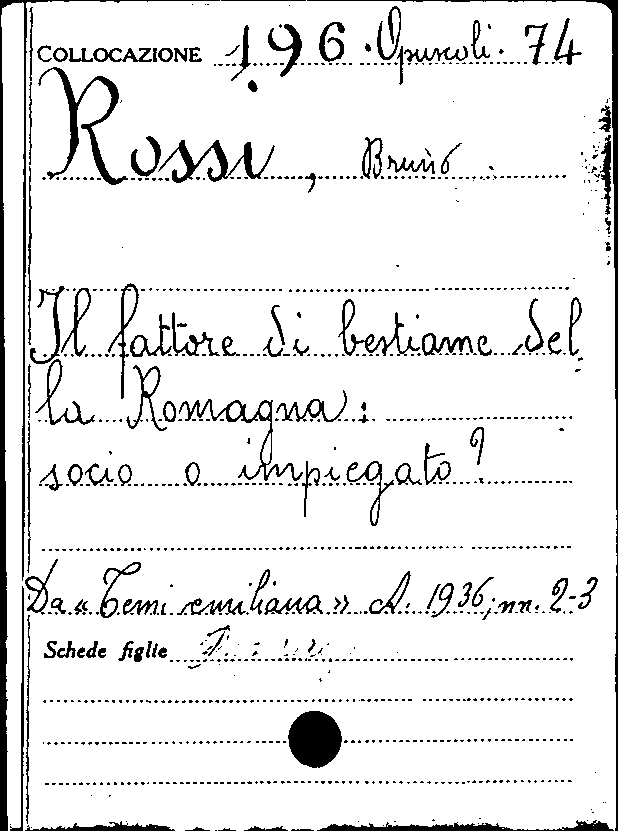 COLLOCAZIONE 196. Opuscoli. 74
Rossi, Bruno.
Il fattore di bestiame del-
la Romagna:
socio o impiegato?
Da « Temi emiliana » A. 1936; nn. 2-3
Schede figlie